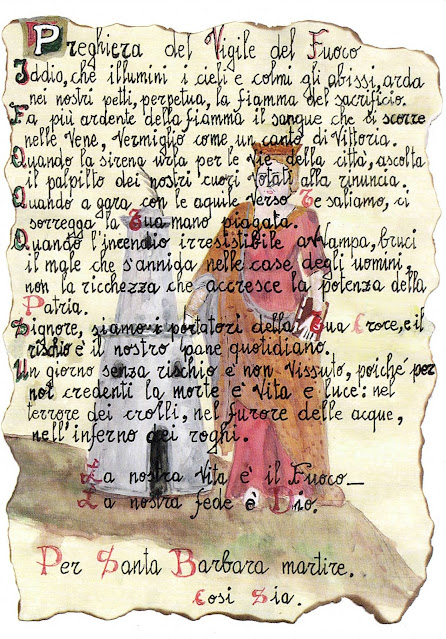 Preghiera del Vigile del Fuoco
Iddio, che illumini i cieli e colmi gli abissi, arda
nei nostri petti, perpetua, la fiamma del sacrificio.
Fa più ardente della fiamma il sangue che ci scorre
nelle Vene, Vermiglio come un canto di Vittoria.
Quando la sirena urla per le Vie della città, ascolta
il palpito dei nostri cuori Votati alla rinuncia.
Quando a gara con le aquile verso Te saliamo, ci
sorregga la Tua mano piagata.
Quando l'incendio irresistibile avvampa, bruci
il male che s'annida nelle case degli uomini,
non la ricchezza che accresce la potenza della
Patria.
Signore, siamo i portatori della Tua Croce, e il
rischio è il nostro pane quotidiano.
Un giorno senza rischio è non Vissuto, poiché per
noi credenti la morte è Vita e luce: nel
terrore dei crolli, nel furore delle acque,
nell'inferno dei roghi.
La nostra Vita è il Fuoco_
La nostra fede è Dio.
Per Santa Barbara martire.
Così Sia.